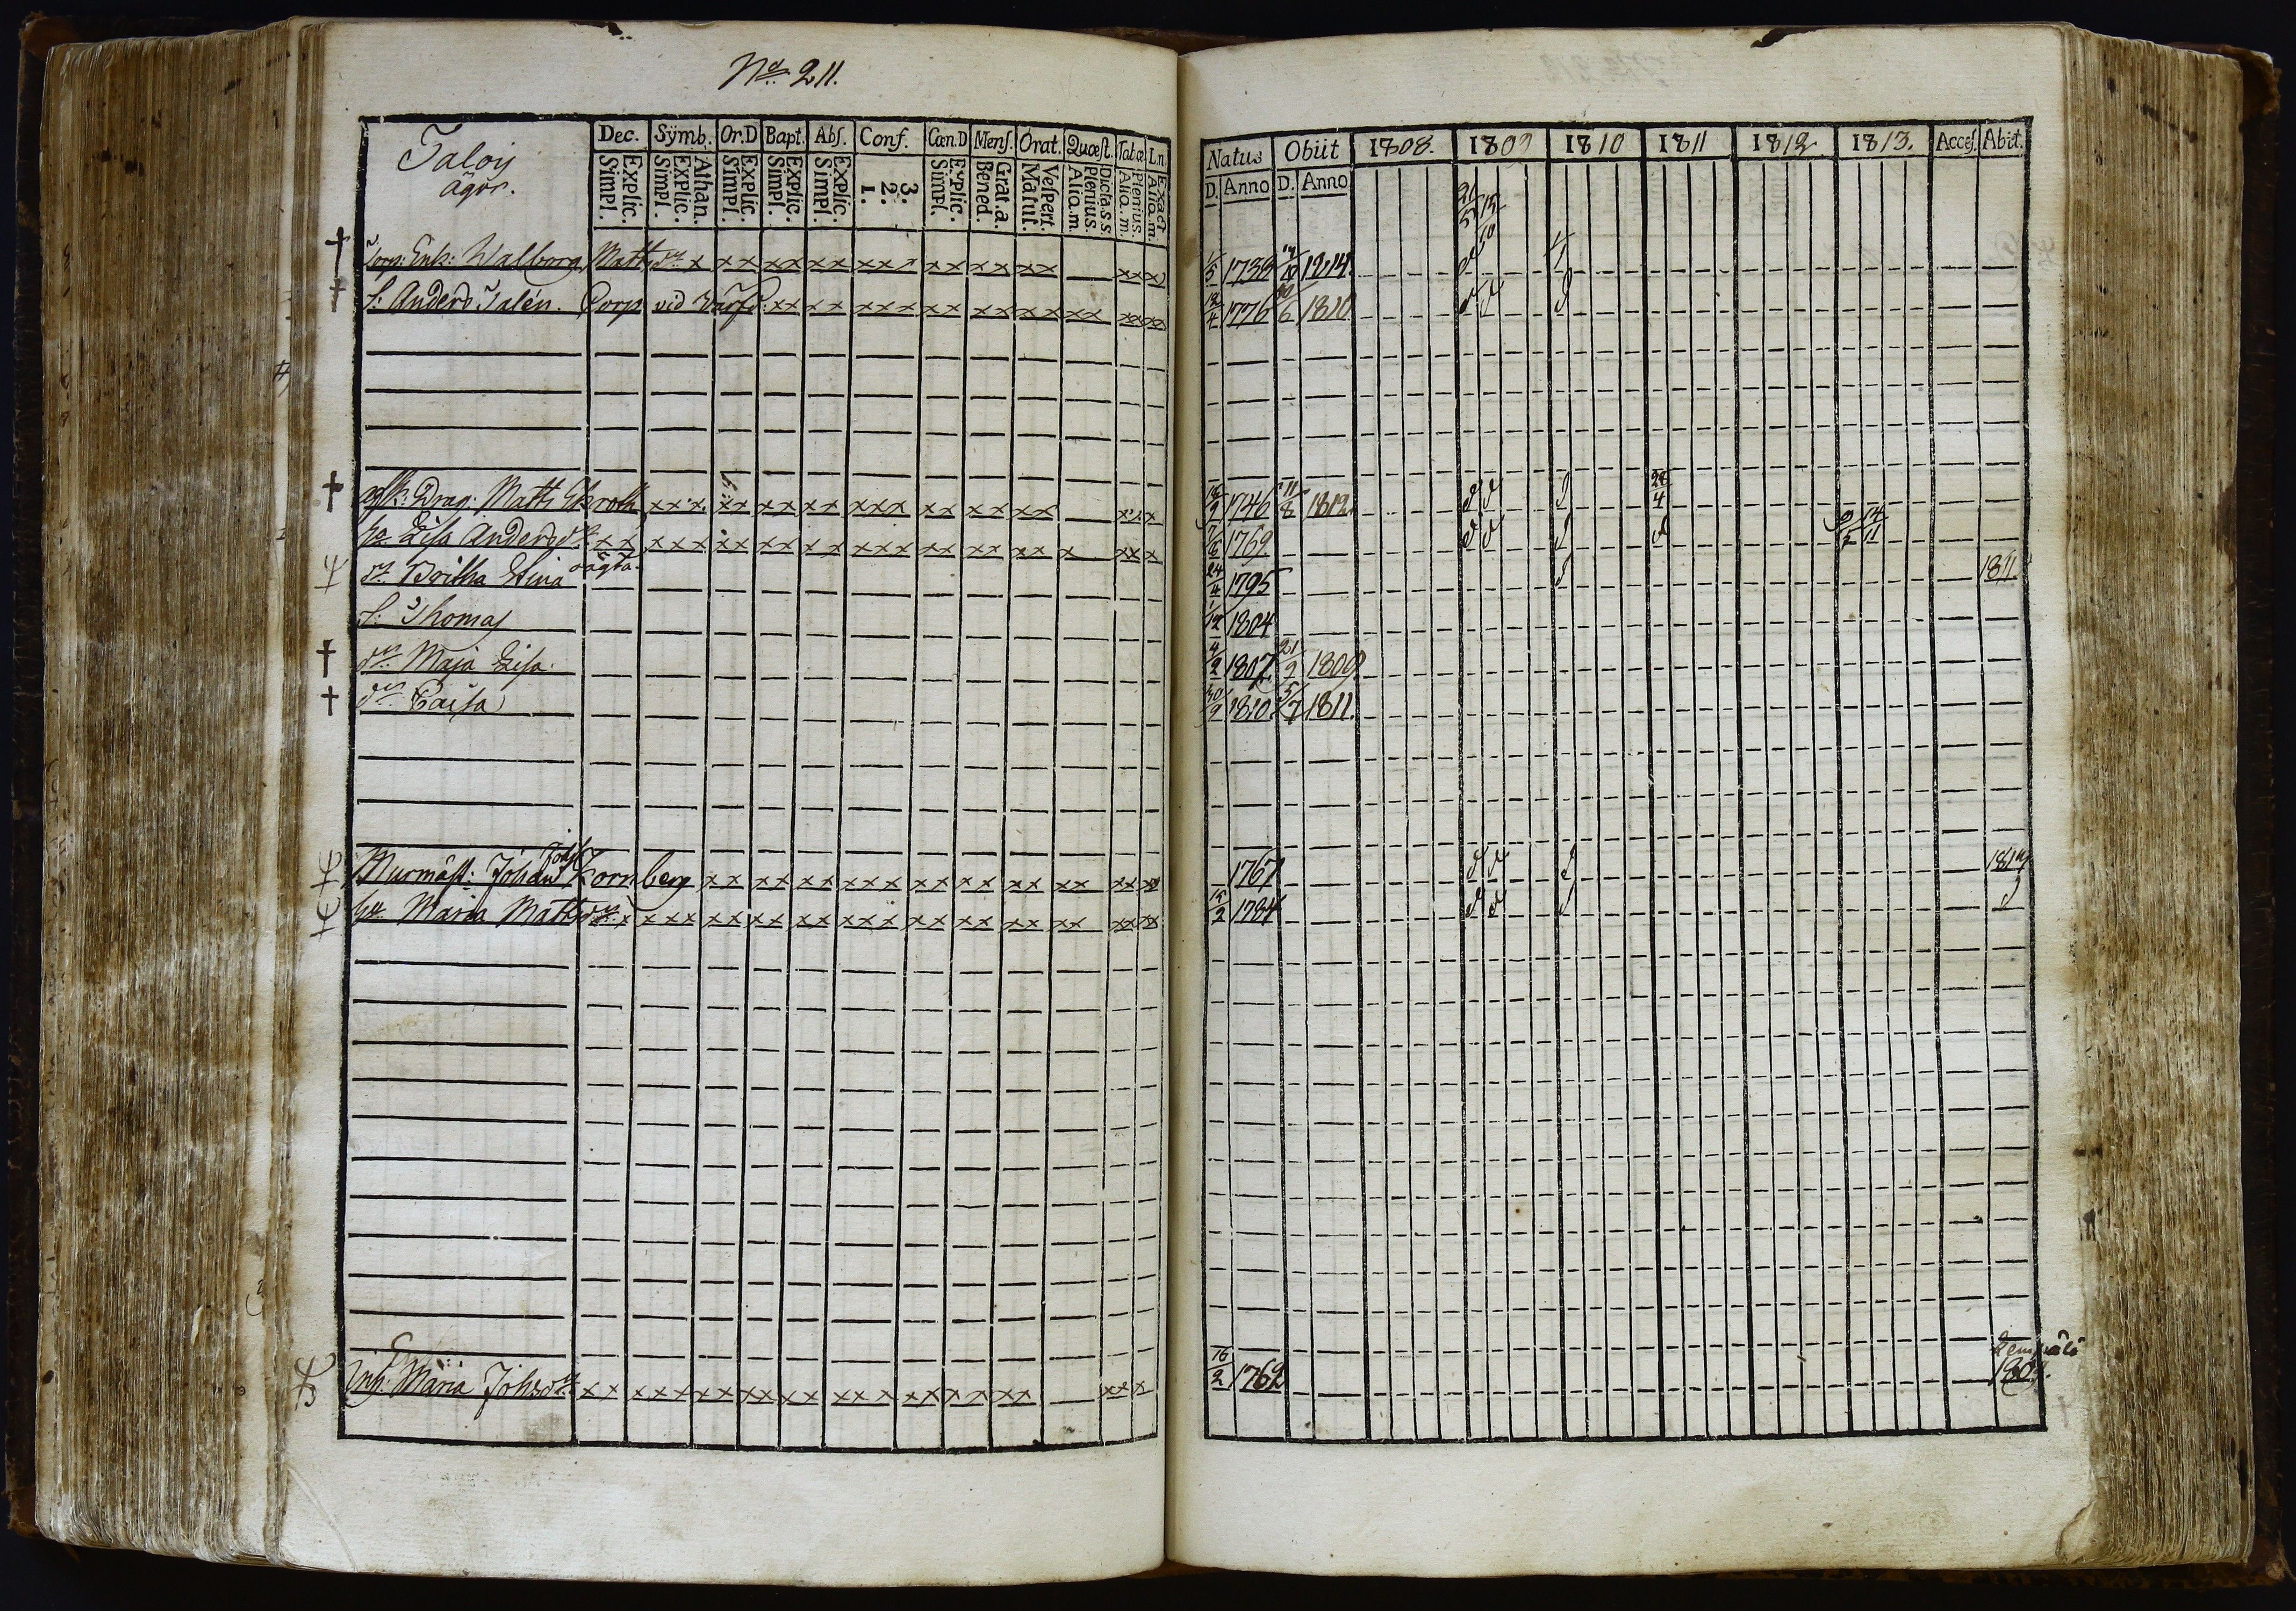 No 211.
Talois
ägor.
Dec. Sÿmb. Or.D Bapt. Abſ. Conf. Cœn.D Menſ. Orat. Quœſt. Tabœ Ln.
Explic. Simpl. Athan. Explic. Simpl. Explic. Simpl. Explic. Simpl. Explic. Simpl. 3. 2. 1. Explic. Simpl. Grat.a. Bened. Veſpert. Matut. Dicta.s.s Plenius. Aliq.m. Plenius. Aliq.m. Exact Aliq.m.
Natus Obiit 1808. 1809 1810 1811 1812 1813. Acceſ. Abiit.
D. Anno D. Anno
Enk: Walborg Mattsdr x xx xx xx xxx xx xx xx xx x 1/5 1738 1814
S: Anders Talén. Corp vid xx xx xxx xx xx xx xx xx xx 12/4 1776 1810
Drag: Matts Ekroth xxx xx xx xx xxx xx xx xx 1746 11/8 1812 28/4
Lisa Andersdr xx xxx xx xx xx xxx xx xx xx x xx x 1769
dr Britha Stina 24/4 1795 1811.
S: Thomas 1/12 1804
dr Maja Lisa. 4/2 1807 21/9 1809
dr Caisa 30/9 1810 5/7 1811.
Murmäst: Johan Kornberg xx xx xx xxx xx xx xx xx xx xx 1767
Maria Mattsdr x xxx xx xx xx xxx xx xx xx xx xx xx 15/2 1784
Inh: Maria Johsdr xx xxx xx xx xx xxx xx xx xx xx x 16/2 1762